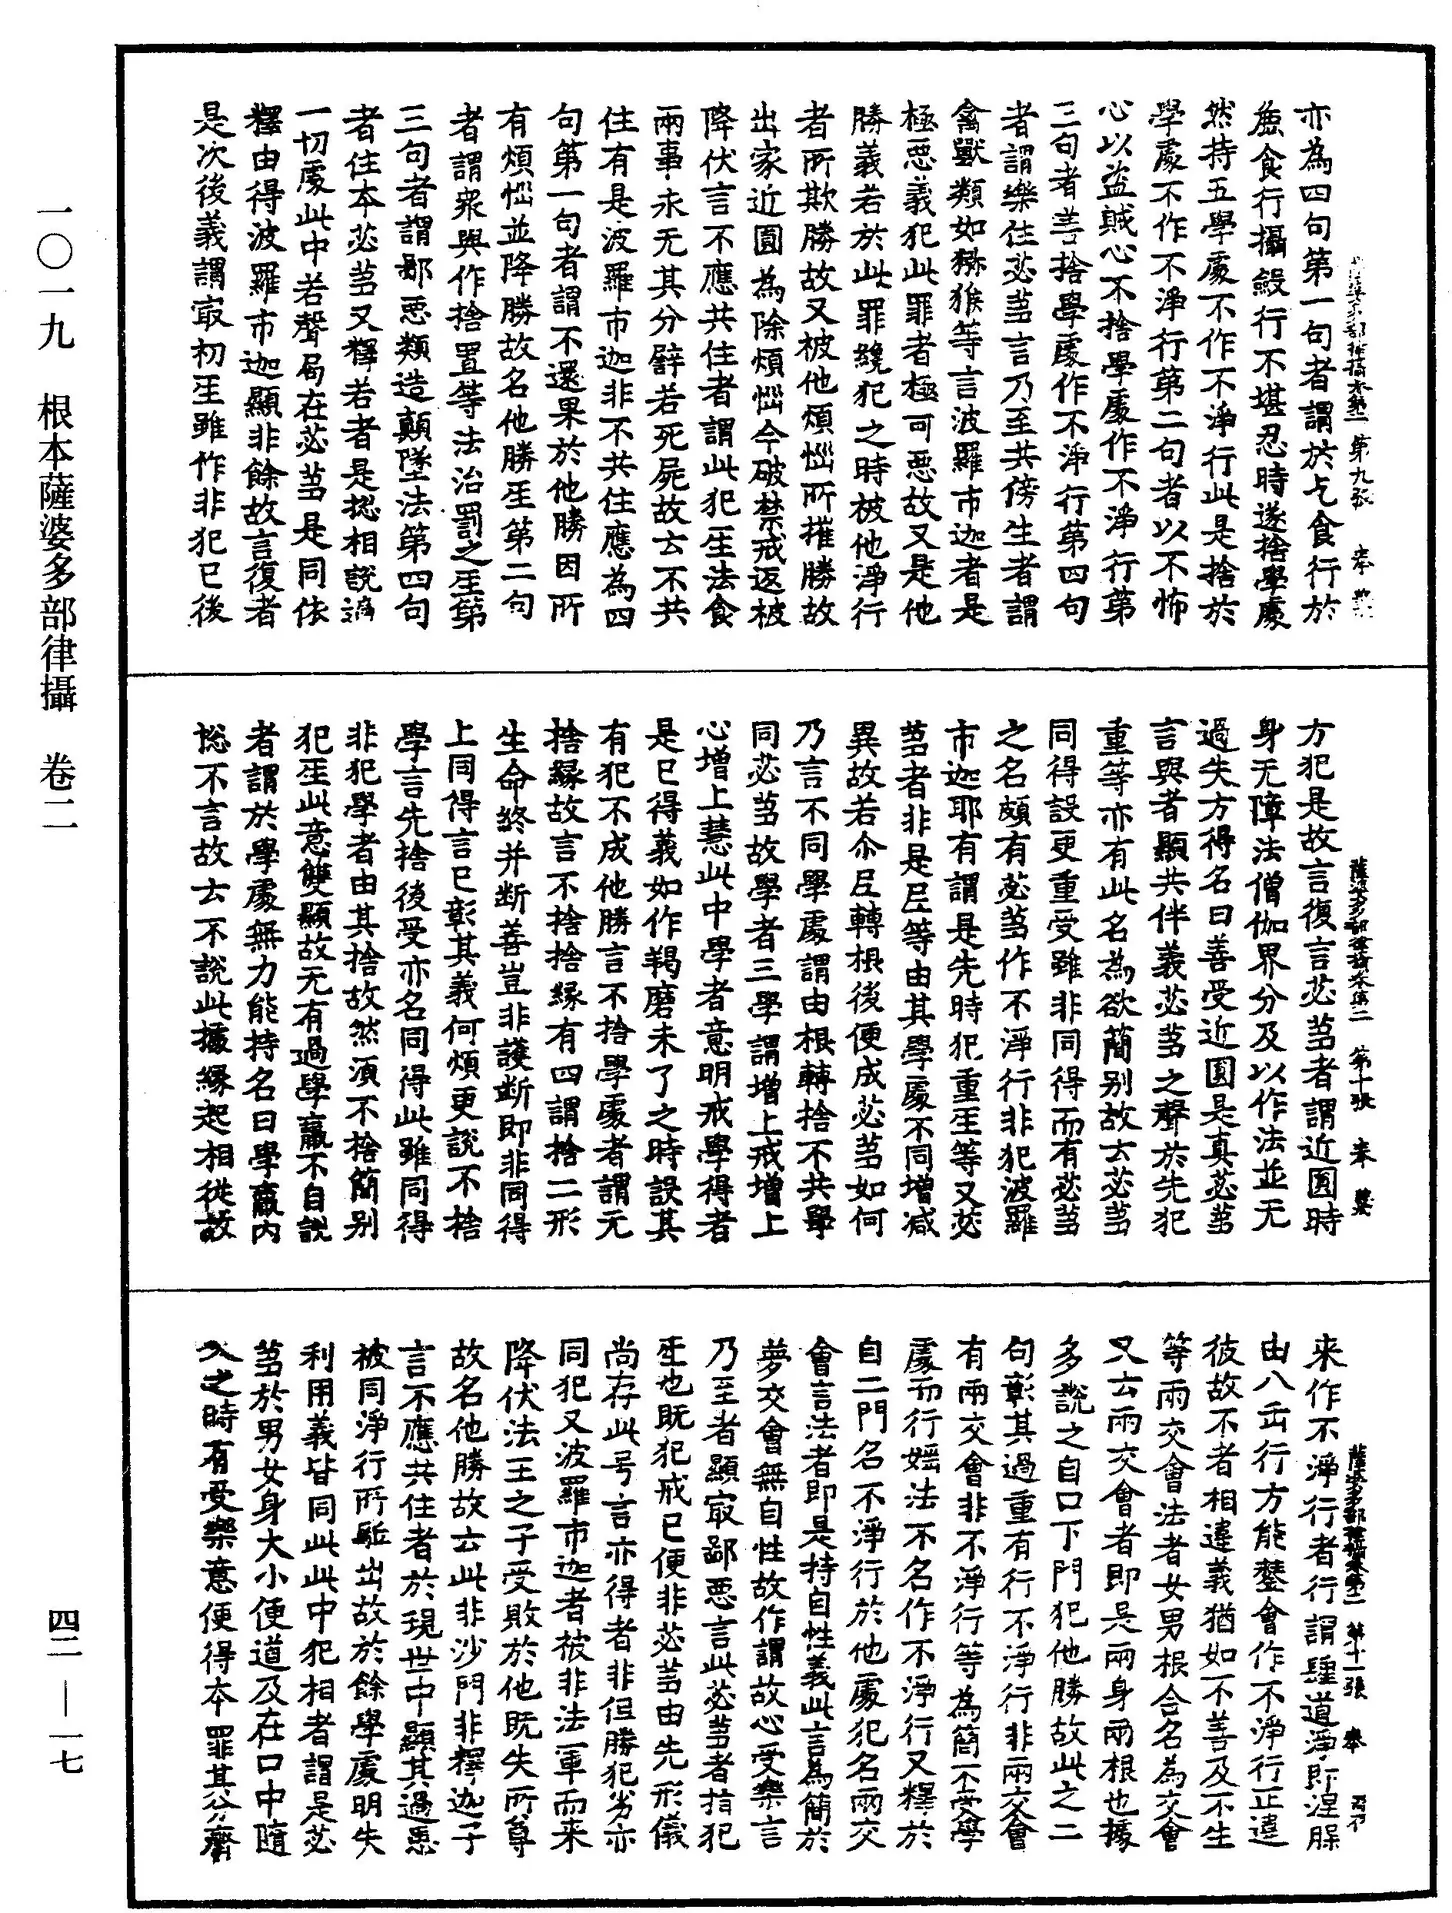 亦為四句第一句者謂於乞食行於
麁食行攝緞行不堪忍時遂捨學處
然持五學處不作不淨行此是捨於
學處不作不淨行第二句者以不怖
心以盜賊心不捨學處作不淨行第
三句者善捨學處作不淨行第四句
者謂樂住苾芻言乃至共傍生者謂
禽獸類如獼猴等言波羅市迦者是
極惡義犯此罪者極可惡故又是他
勝義若於此罪纔犯之時被他淨行
者所欺勝故又被他煩惱所摧勝故
出家近圓為除煩惱今破禁戒返被
降伏言不應共住者謂此犯人生法食
兩事永无其分譬若死屍故云不共
住有是波羅市迦非不共住應為四
句第一句者謂不還果於他勝因所
有煩惱並降勝故名他勝𤯔第二句
者謂眾與作捨置等法治罰之𤯔第
三句者謂鄙惡類造顛墜法第四句
者住本苾芻又釋若者是揔相說遍
一切處此中若聲局在苾芻是同依
釋由得波羅市迦顯非餘故言復者
是次後義謂寂初𤯔雖作非犯已後
方犯是故言復言苾芻者謂近圓時
身无障法僧伽界分及以作法並无
過失方得名曰善受近圓是真苾芻
言與者顯共伴義苾芻之聲於先犯
重等亦有此名為欲簡別故云苾芻
同得設更重受雖非同得而有苾芻
之名頗有苾芻作不淨行非犯波羅
市迦耶有謂是先時犯重𤯔等又苾
芻者非是𡰱等由其學處不同增減
異故若尒𡰱轉根後便成苾芻如何
乃言不同學處謂由根轉捨不共學
同苾芻故學者三學謂增上戒增上
心增上慧此中學者意明戒學得者
是已得義如作羯磨未了之時設其
有犯不成他勝言不捨學處者謂无
捨緣故言不捨捨緣有四謂捨二形
生命終并斷善豈非護斷即非同得
上同得言已彰其義何煩更說不捨
學言先捨後受亦名同得此雖同得
非犯學者由其捨故然須不捨簡別
犯𤯔此意雙顯故无有過學羸不自說
者謂於學處無力能持名曰學羸內
惱不言故云不說此據緣起相從故
來作不淨行者行謂聖道淨即涅槃
由八正行方能鏨會作不淨行正違
彼故不者相違義猶如不善及不生
等兩交會法者女男根合名為交會
又云兩交會者即是兩身兩根也據
多說之自口下門犯他勝故此之二
句彰其過重有行不淨行非兩交會
有兩交會非不淨行等為簡不受學
處而行婬法不名作不淨行又釋於
自二門名不淨行於他處犯名兩交
會言法者即是持自性義此言為簡於
夢交會無自性故作謂故心受樂言
乃至者顯寂鄙惡言此苾芻者指犯
𤯔也既犯戒已便非苾芻由先形儀
尚存此号言亦得者非但勝犯劣亦
同犯又波羅市迦者被非法軍而來
降伏法王之子受敗於他既失所尊
故名他勝故云此非沙門非釋迦子
言不應共住者於現世中顯其過患
被同淨行所駈出故於餘學處明失
利用義皆同此此中犯相者謂是苾
芻於男女身大小便道及在口中隨
入之時有受樂意便得本罪其分齊
一〇一九 根本薩婆多部律攝 卷二
四二—一七